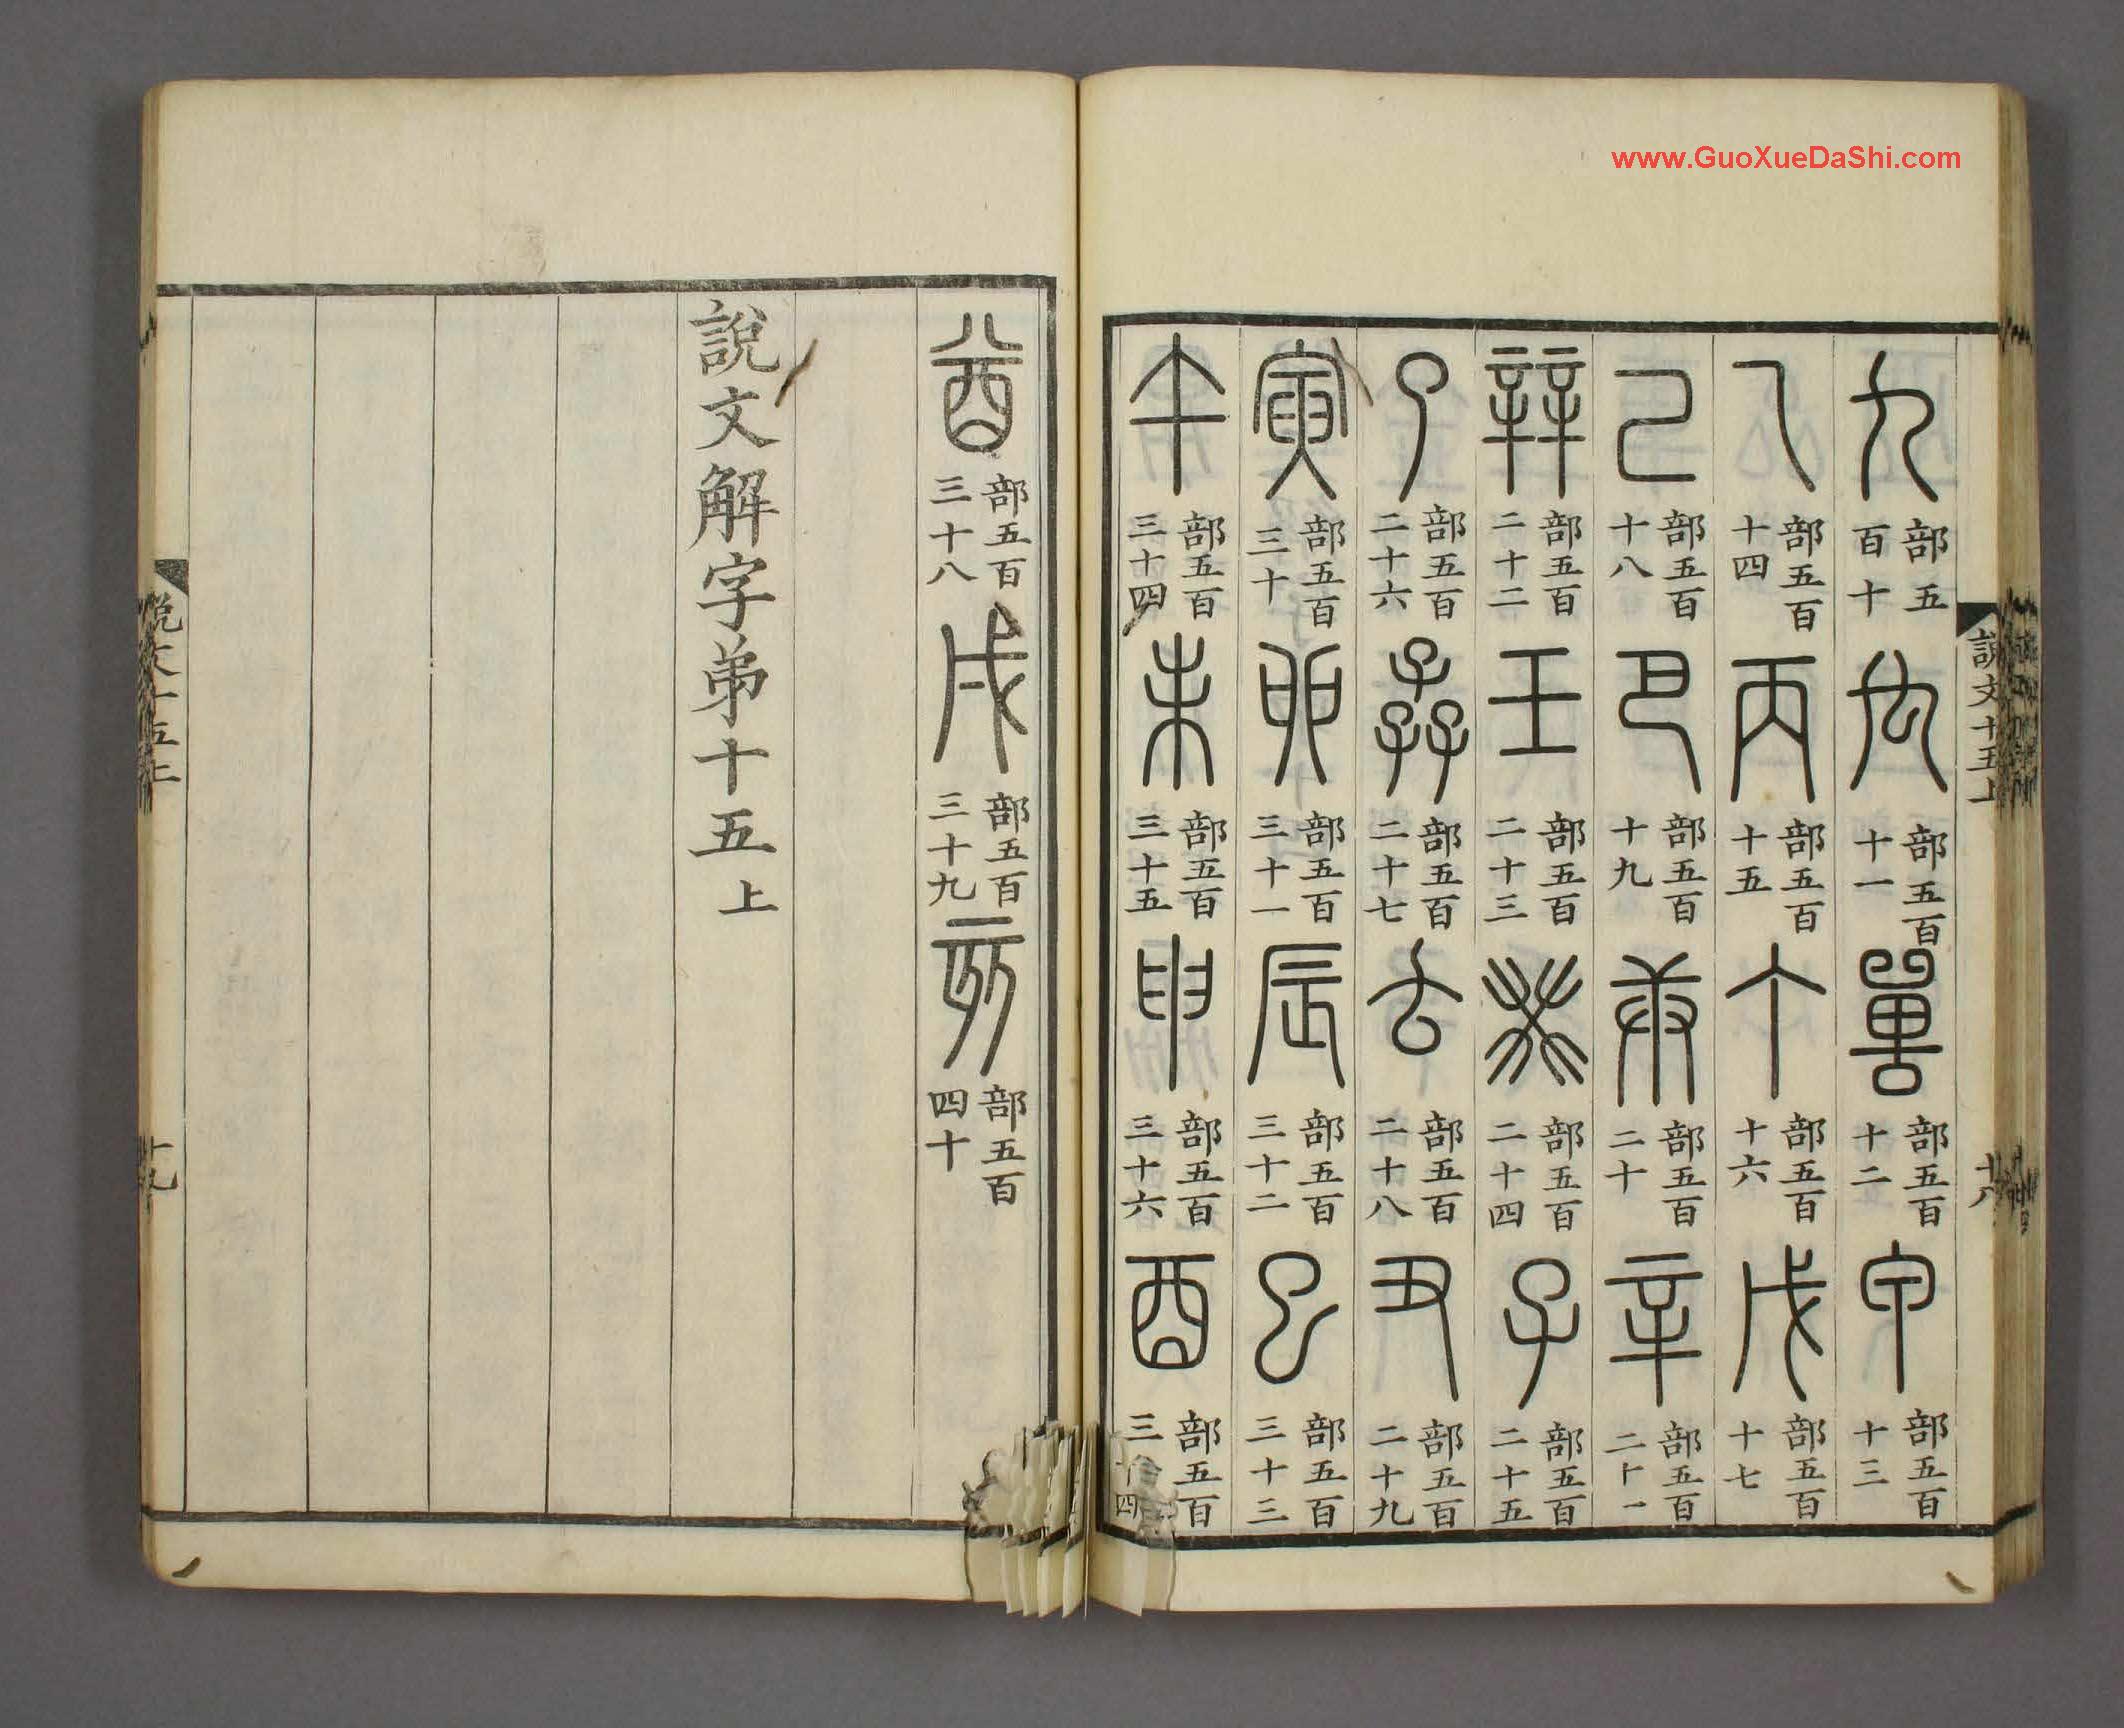 www.GuoXueDaShi.com
說文十五上 十八
九部五百十 禸部五百十一 嘼部五百十二 甲部五百十三
乙部五百十四 丙部五百十五 丁部五百十六 戊部五百十七
己部五百十八 巴部五百十九 庚部五百二十 辛部五百二十一
辡部五百二十二 壬部五百二十三 癸部五百二十四 子部五百二十五
了部五百二十六 孨部五百二十七 𠫓部五百二十八 丑部五百二十九
寅部五百三十 卯部五百三十一 辰部五百三十二 巳部五百三十三
午部五百三十四 未部五百三十五 申部五百三十六 酉部五百三十
酋部五百三十八 戌部五百三十九 亥部五百四十
說文解字弟十五上
說文十五上 十九